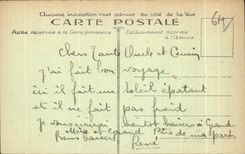 Aucune inscription n'est admise du côté de la Vue
CARTE POSTALE
Partie réservée à la Correspondance
Exclusivement réservée à l'Adresse
64
Chers Tante Oncle et Cousin
J'ai fait bon voyage
ici il fait un soleil épatant
et il ne fait pas froid
je vous écrirai bientôt baisers à Grand
Mère et Grand Père de ma part
Bons baisers René